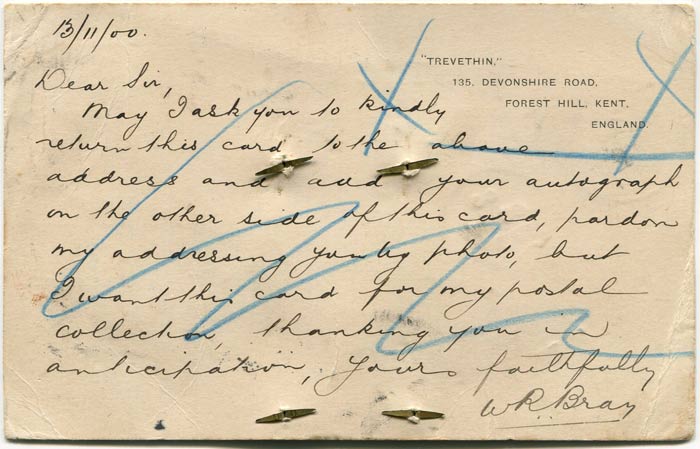 13/11/00.
"TREVETHIN,"
135, DEVONSHIRE ROAD,
FOREST HILL, KENT,
ENGLAND.
Dear Sir,
May I ask you to kindly
return this card to the above
address and add your autograph
on the other side of this card, pardon
my addressing you by photo, but
I want this card for my postal
collection, thanking you in
anticipation, Yours faithfully
W.R. Bray